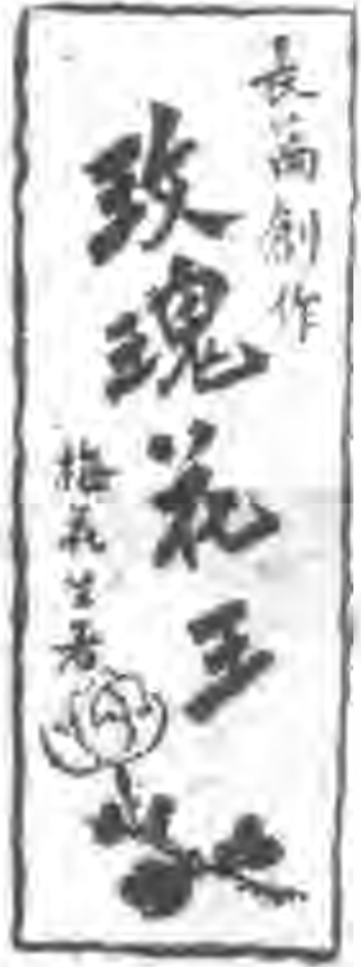 長篇創作
玫瑰花王
梅花生著